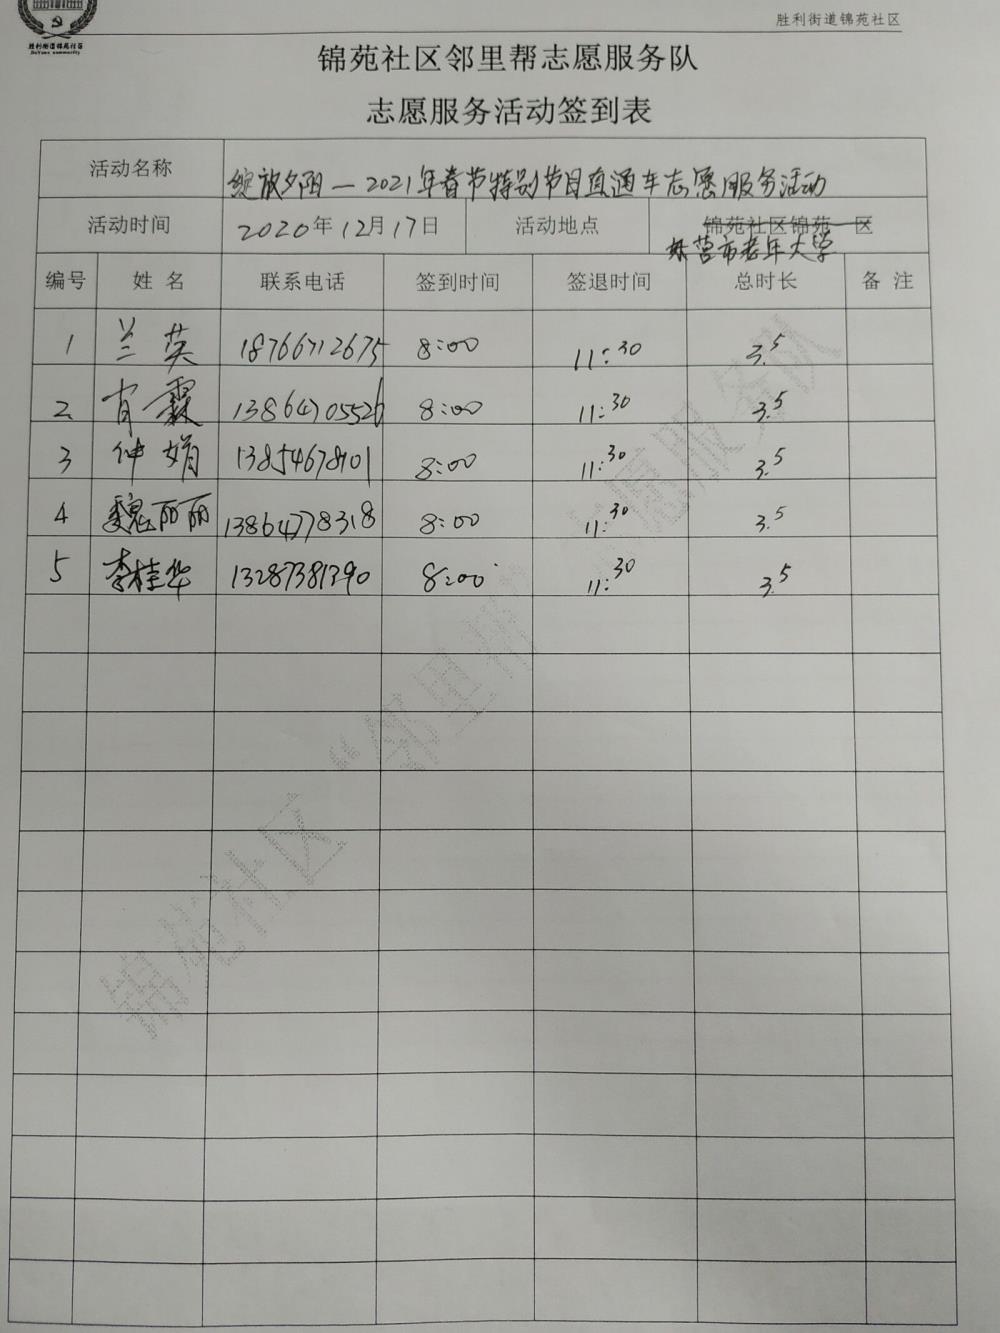 胜利街道锦苑社区
胜利街道锦苑社区
锦苑社区邻里帮志愿服务队
志愿服务活动签到表
活动名称 绽放夕阳—2021年春节特别节目直通车志愿服务活动
活动时间 2020年12月17日 活动地点 锦苑社区锦苑一区
东营市老年大学
编号 姓名 联系电话 签到时间 签退时间 总时长 备注
1 兰英 18766712675 8:00 11:30 3.5
2 肖霖 13864705526 8:00 11:30 3.5
3 仲娟 13854678101 8:00 11:30 3.5
4 魏丽丽 13864778318 8:00 11:30 3.5
5 李桂华 13287381390 8:00 11:30 3.5
锦苑社区“邻里帮”志愿服务队